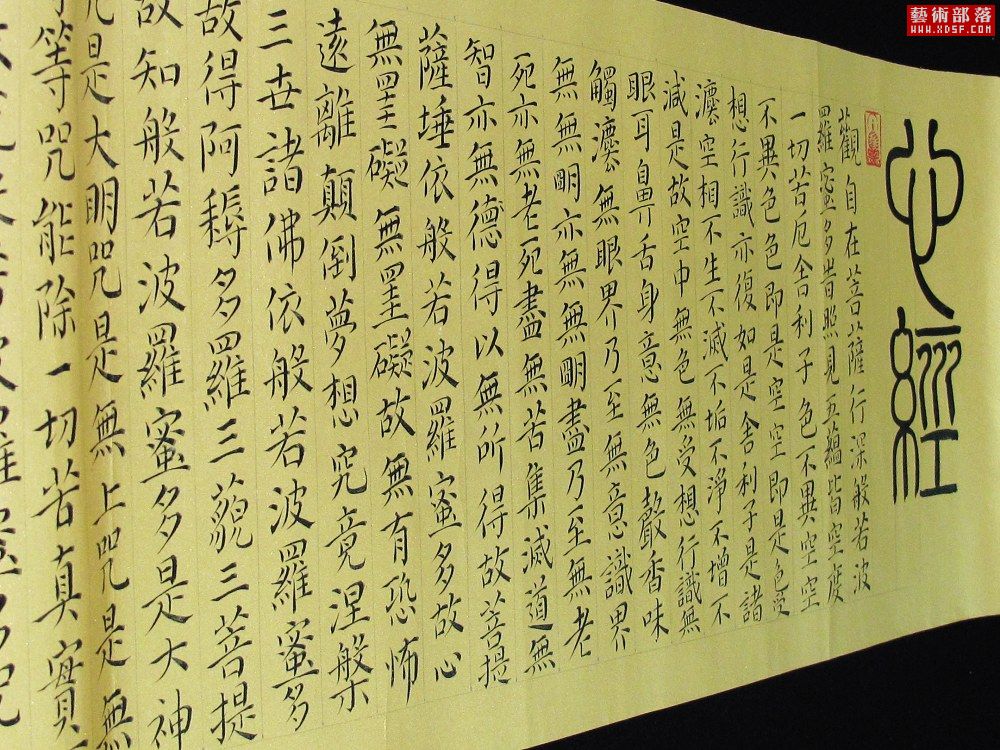 藝術部落
WWW.XDSF.COM
心經
觀自在菩薩行深般若波
羅蜜多旹照見五蘊皆空度
一切苦厄舍利子色不異空空
不異色色即是空空即是色受
想行識亦復如是舍利子是諸
灋空相不生不滅不垢不淨不增不
減是故空中無色無受想行識無
眼耳鼻舌身意無色聲香味
觸灋無眼界乃至無意識界
無無朙亦無無朙盡乃至無老
死亦無老死盡無苦集滅道無
智亦無德得以無所得故菩提
薩埵依般若波羅蜜多故心
無罣礙無罣礙故無有恐怖
遠離顛倒夢想究竟涅槃
三世諸佛依般若波羅蜜多
故得阿耨多羅三藐三菩提
故知般若波羅蜜多是大神
咒是大明咒是無上咒是無
等等咒能除一切苦真實